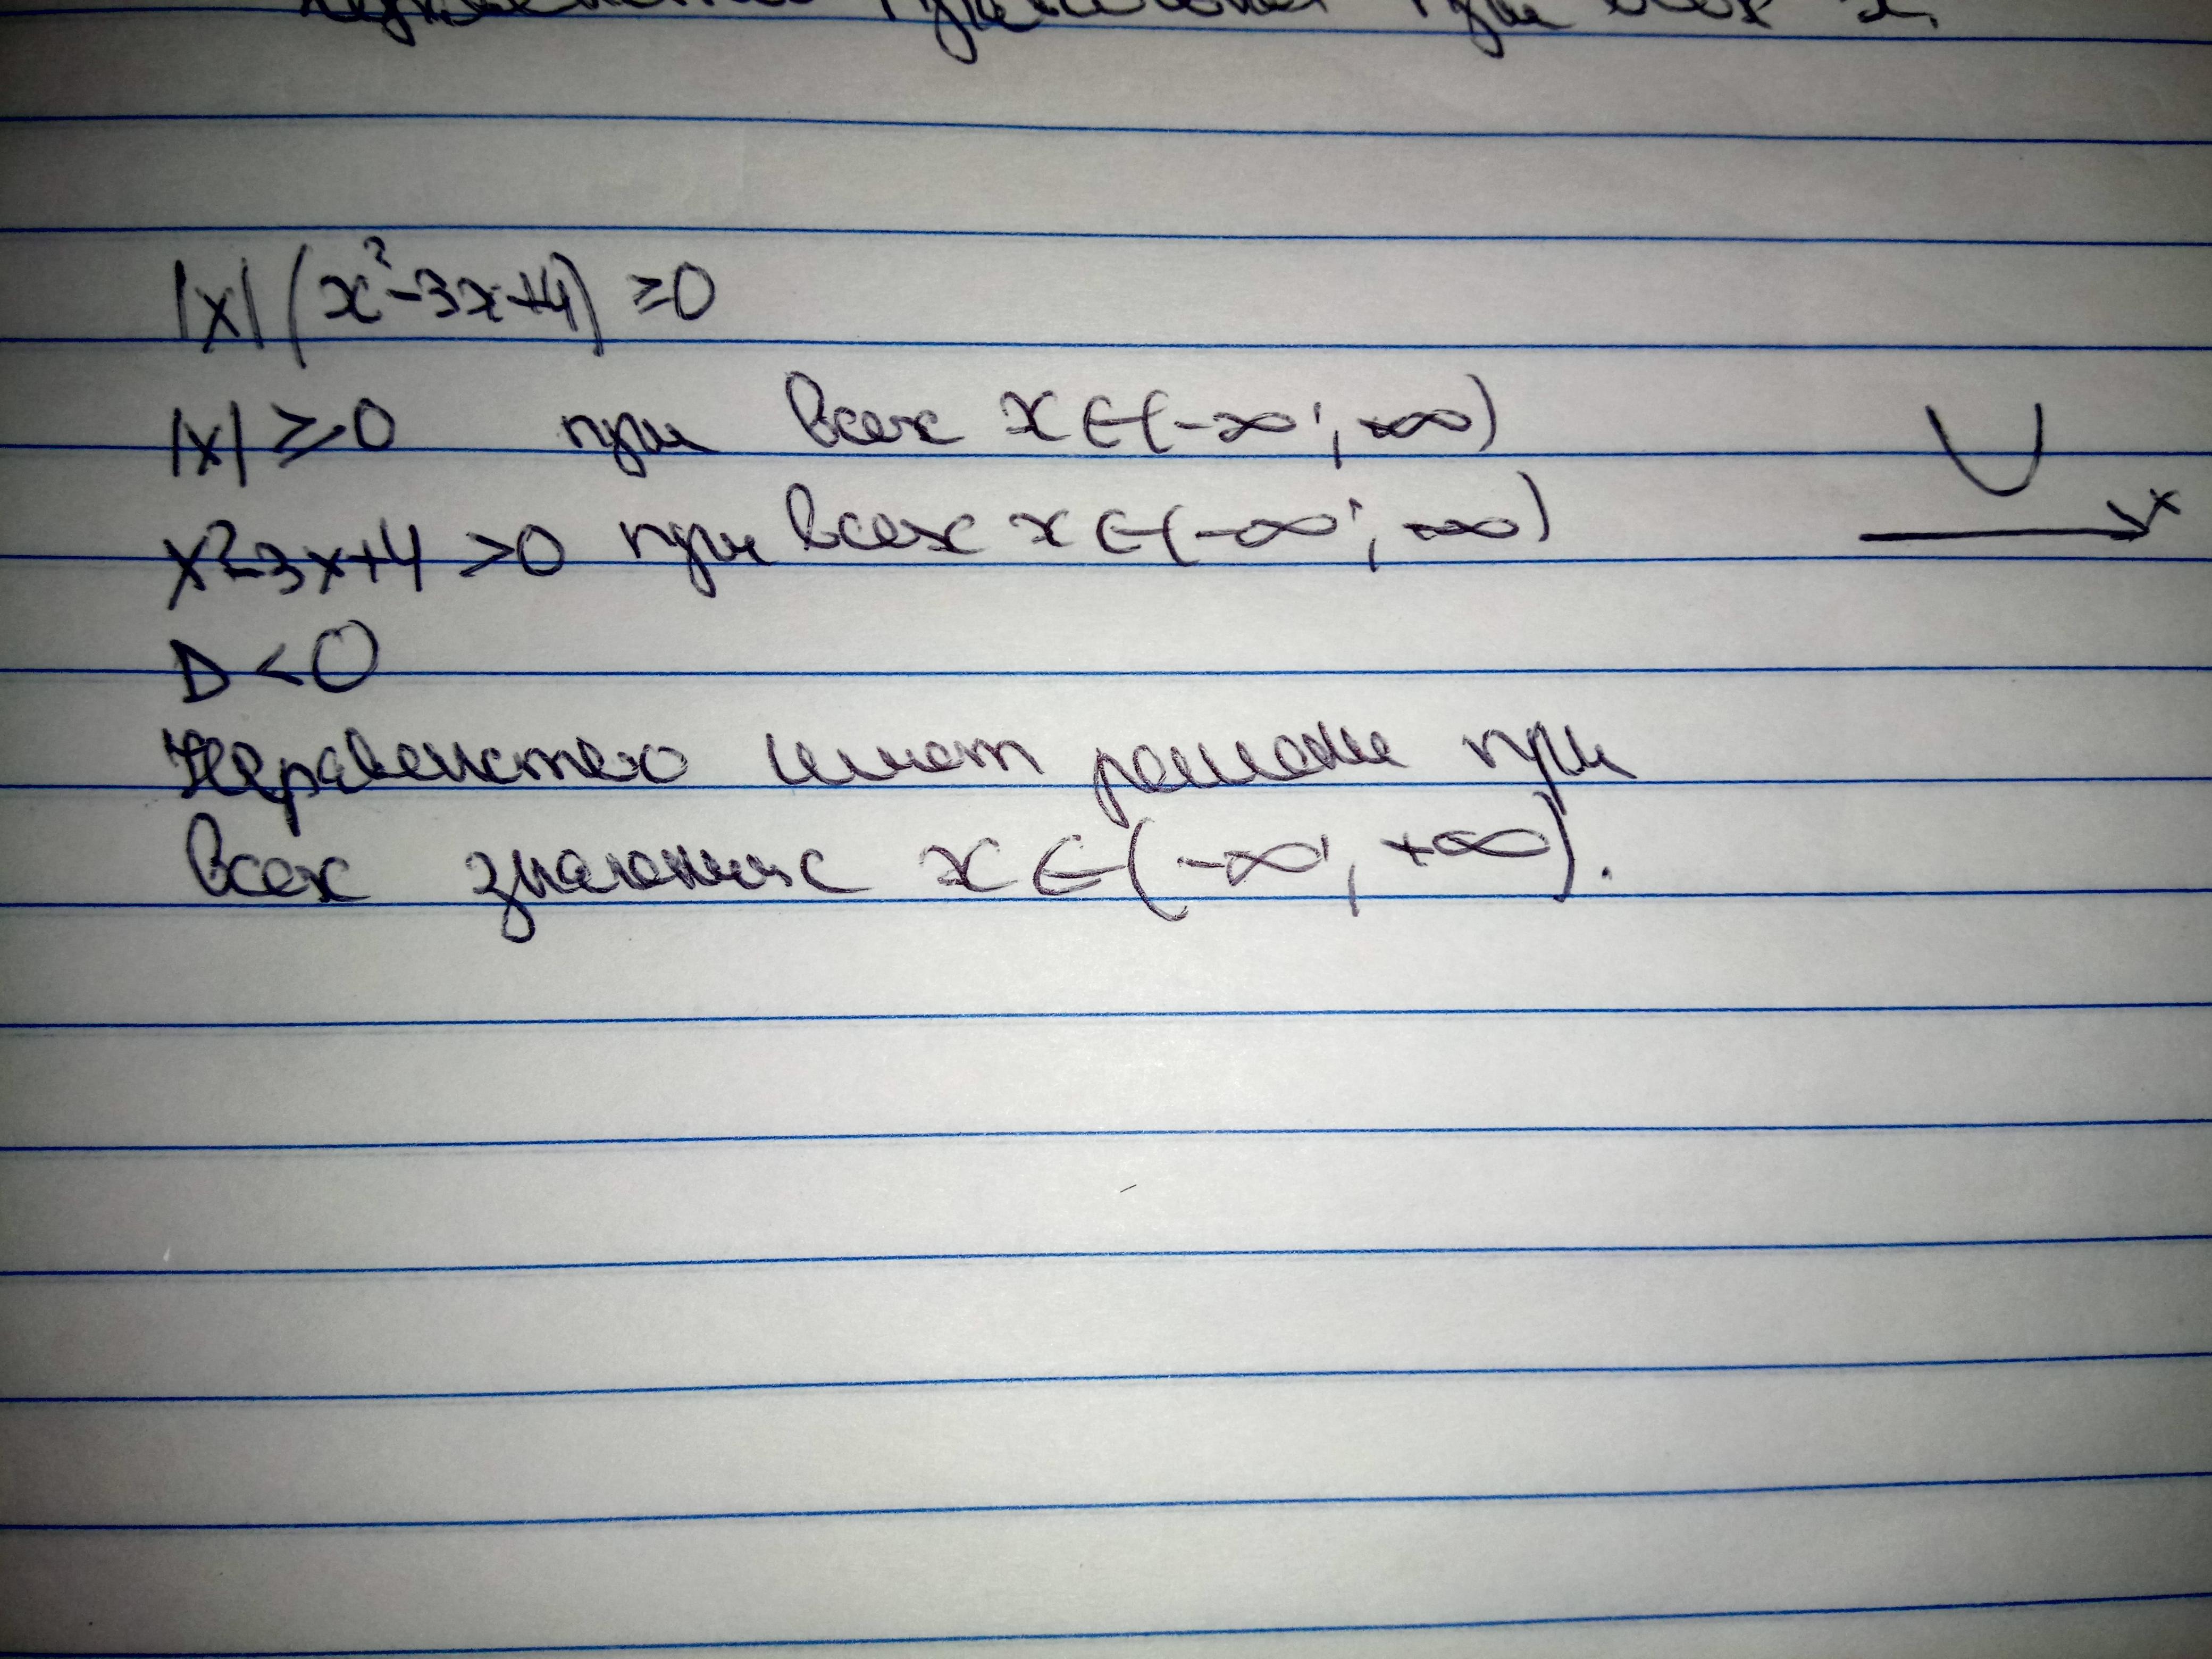 неравенство при всех x.
|x| (x²-3x+4) ≥0
|x| ≥0 при всех x∈(-∞; +∞)
x²-3x+4 >0 при всех x∈(-∞; +∞)
x
D<0
Неравенство имеет решение при
всех значениях x∈(-∞; +∞).